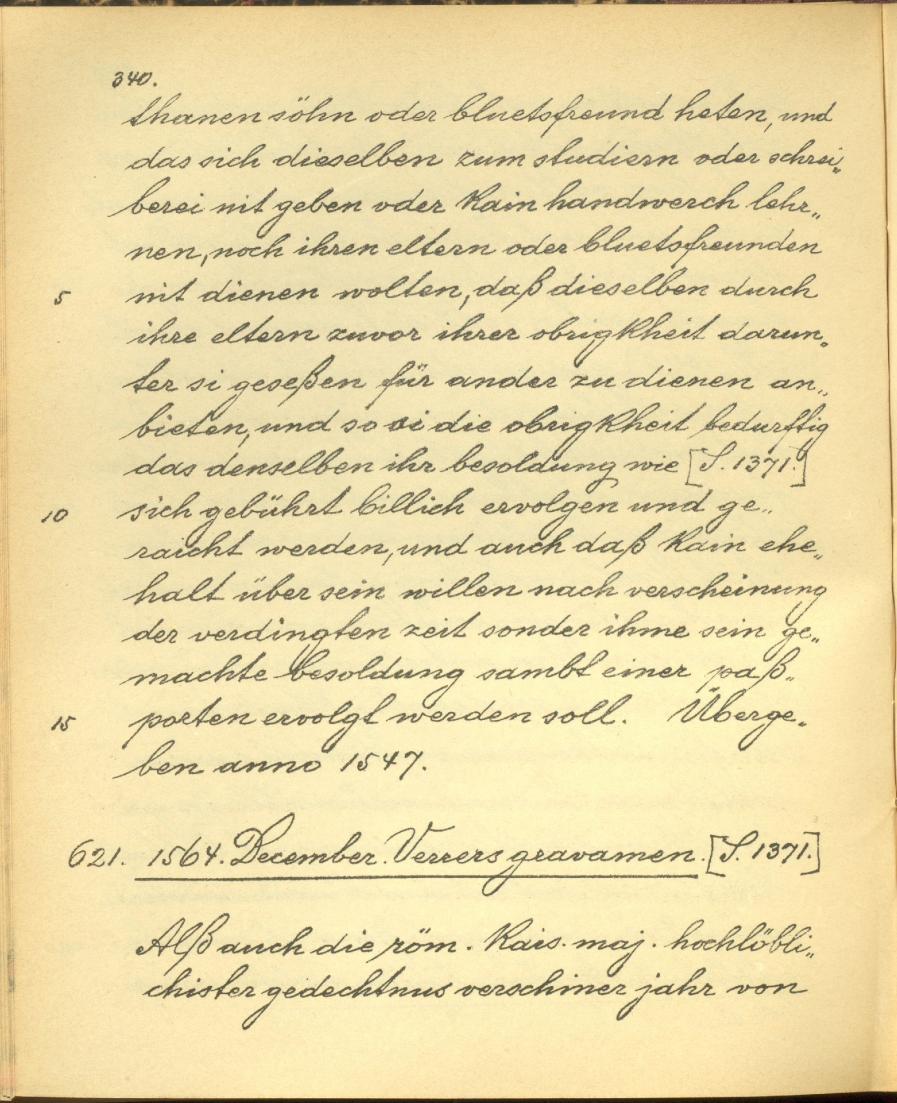 340.
thanen söhn oder bluetsfreund heten, und
das sich dieselben zum studiern oder schrei„
berei nit geben oder kain handwerch lehr„
nen, noch ihren eltern oder bluetsfreunden
5 nit dienen wolten, daß dieselben durch
ihre eltern zuvor ihrer obrigkheit darun„
ter si geseßen für ander zu dienen an„
bieten, und so si die obrigkheit bedurftig
das denselben ihr besoldung wie [S. 1371.]
10 sich gebührt billich ervolgen und ge„
raicht werden, und auch daß kain ehe„
halt über sein willen nach verscheinung
der verdingten zeit sonder ihme sein ge„
machte besoldung sambt einer paß„
15 porten ervolgt werden soll. Überge„
ben anno 1547.
621. 1564. December. Verrers gravamen. [S. 1371.]
Alß auch die röm. kais. maj. hochlöbli„
chister gedechtnus verschiner jahr von